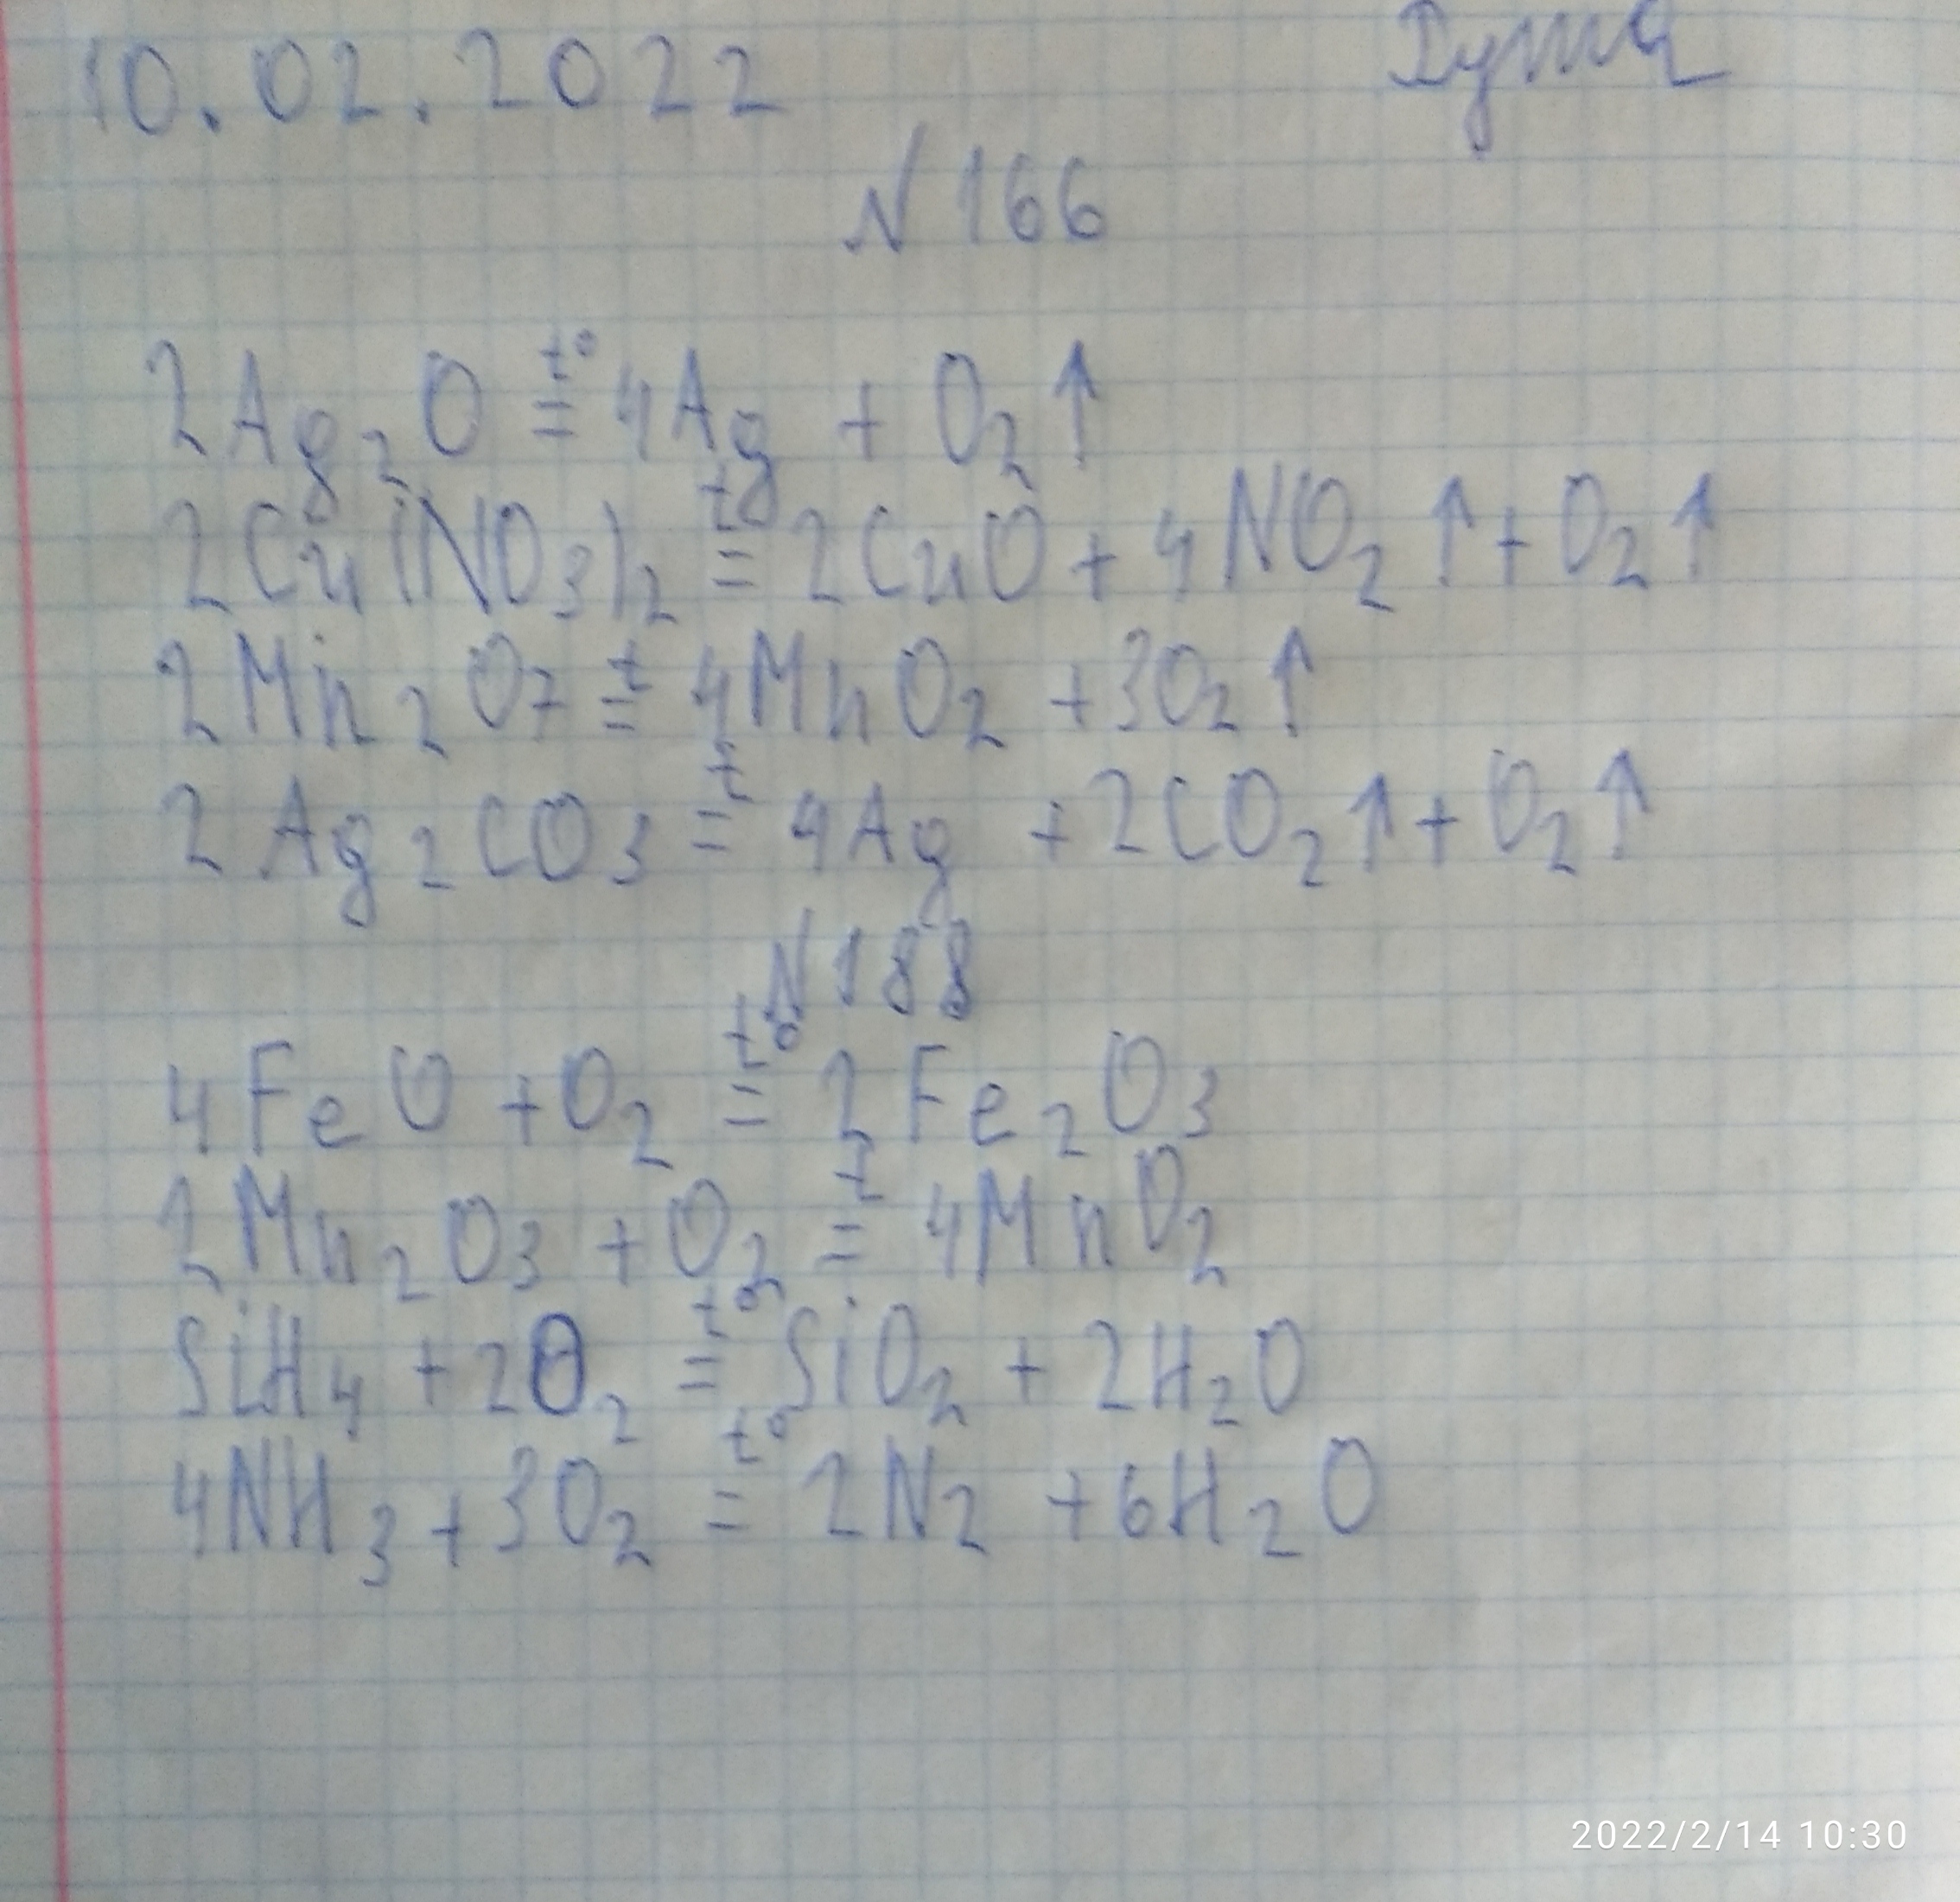 10.02.2022
N 166
2Ag₂O t°= 4Ag + O₂↑
2Cu(NO₃)₂ t= 2CuO + 4NO₂↑ + O₂↑
2Mn₂O₇ t= 4MnO₂ + 3O₂↑
2Ag₂CO₃ t= 4Ag + 2CO₂↑ + O₂↑
N188
4FeO + O₂ t°= 2Fe₂O₃
2Mn₂O₃ + O₂ t= 4MnO₂
SiH₄ + 2O₂ t°= SiO₂ + 2H₂O
4NH₃ + 3O₂ t°= 2N₂ + 6H₂O
2022/2/14 10:30